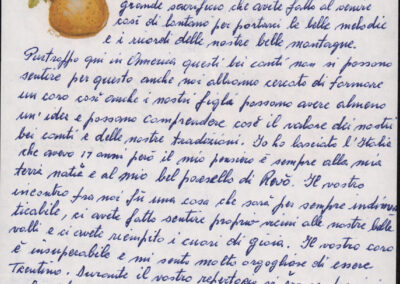 grande sacrificio che avete fatto al venire
così di lontano per portarci le belle melodie
e i ricordi delle nostre belle montagne.
Purtroppo qui in America questi bei canti non si possono
sentire per questo anche noi abbiamo cercato di formare
un coro così anche i nostri figli possono avere almeno
un'idea e possano comprendere cos'è il valore dei nostri
bei canti e delle nostre tradizioni. Io ho lasciato l'Italia
che avevo 17 anni però il mio pensiero è sempre alla mia
terra natia e al mio bel paesello di Revò. Il vostro
incontro fra noi fù una cosa che sarà per sempre indimen
ticabile, ci avete fatto sentire proprio vicini alle nostre belle
valli e ci avete riempito i cuori di gioia. Il vostro coro
è insuperabile e mi sento molto orgogliosa di essere
Trentina. Durante il vostro repertorio